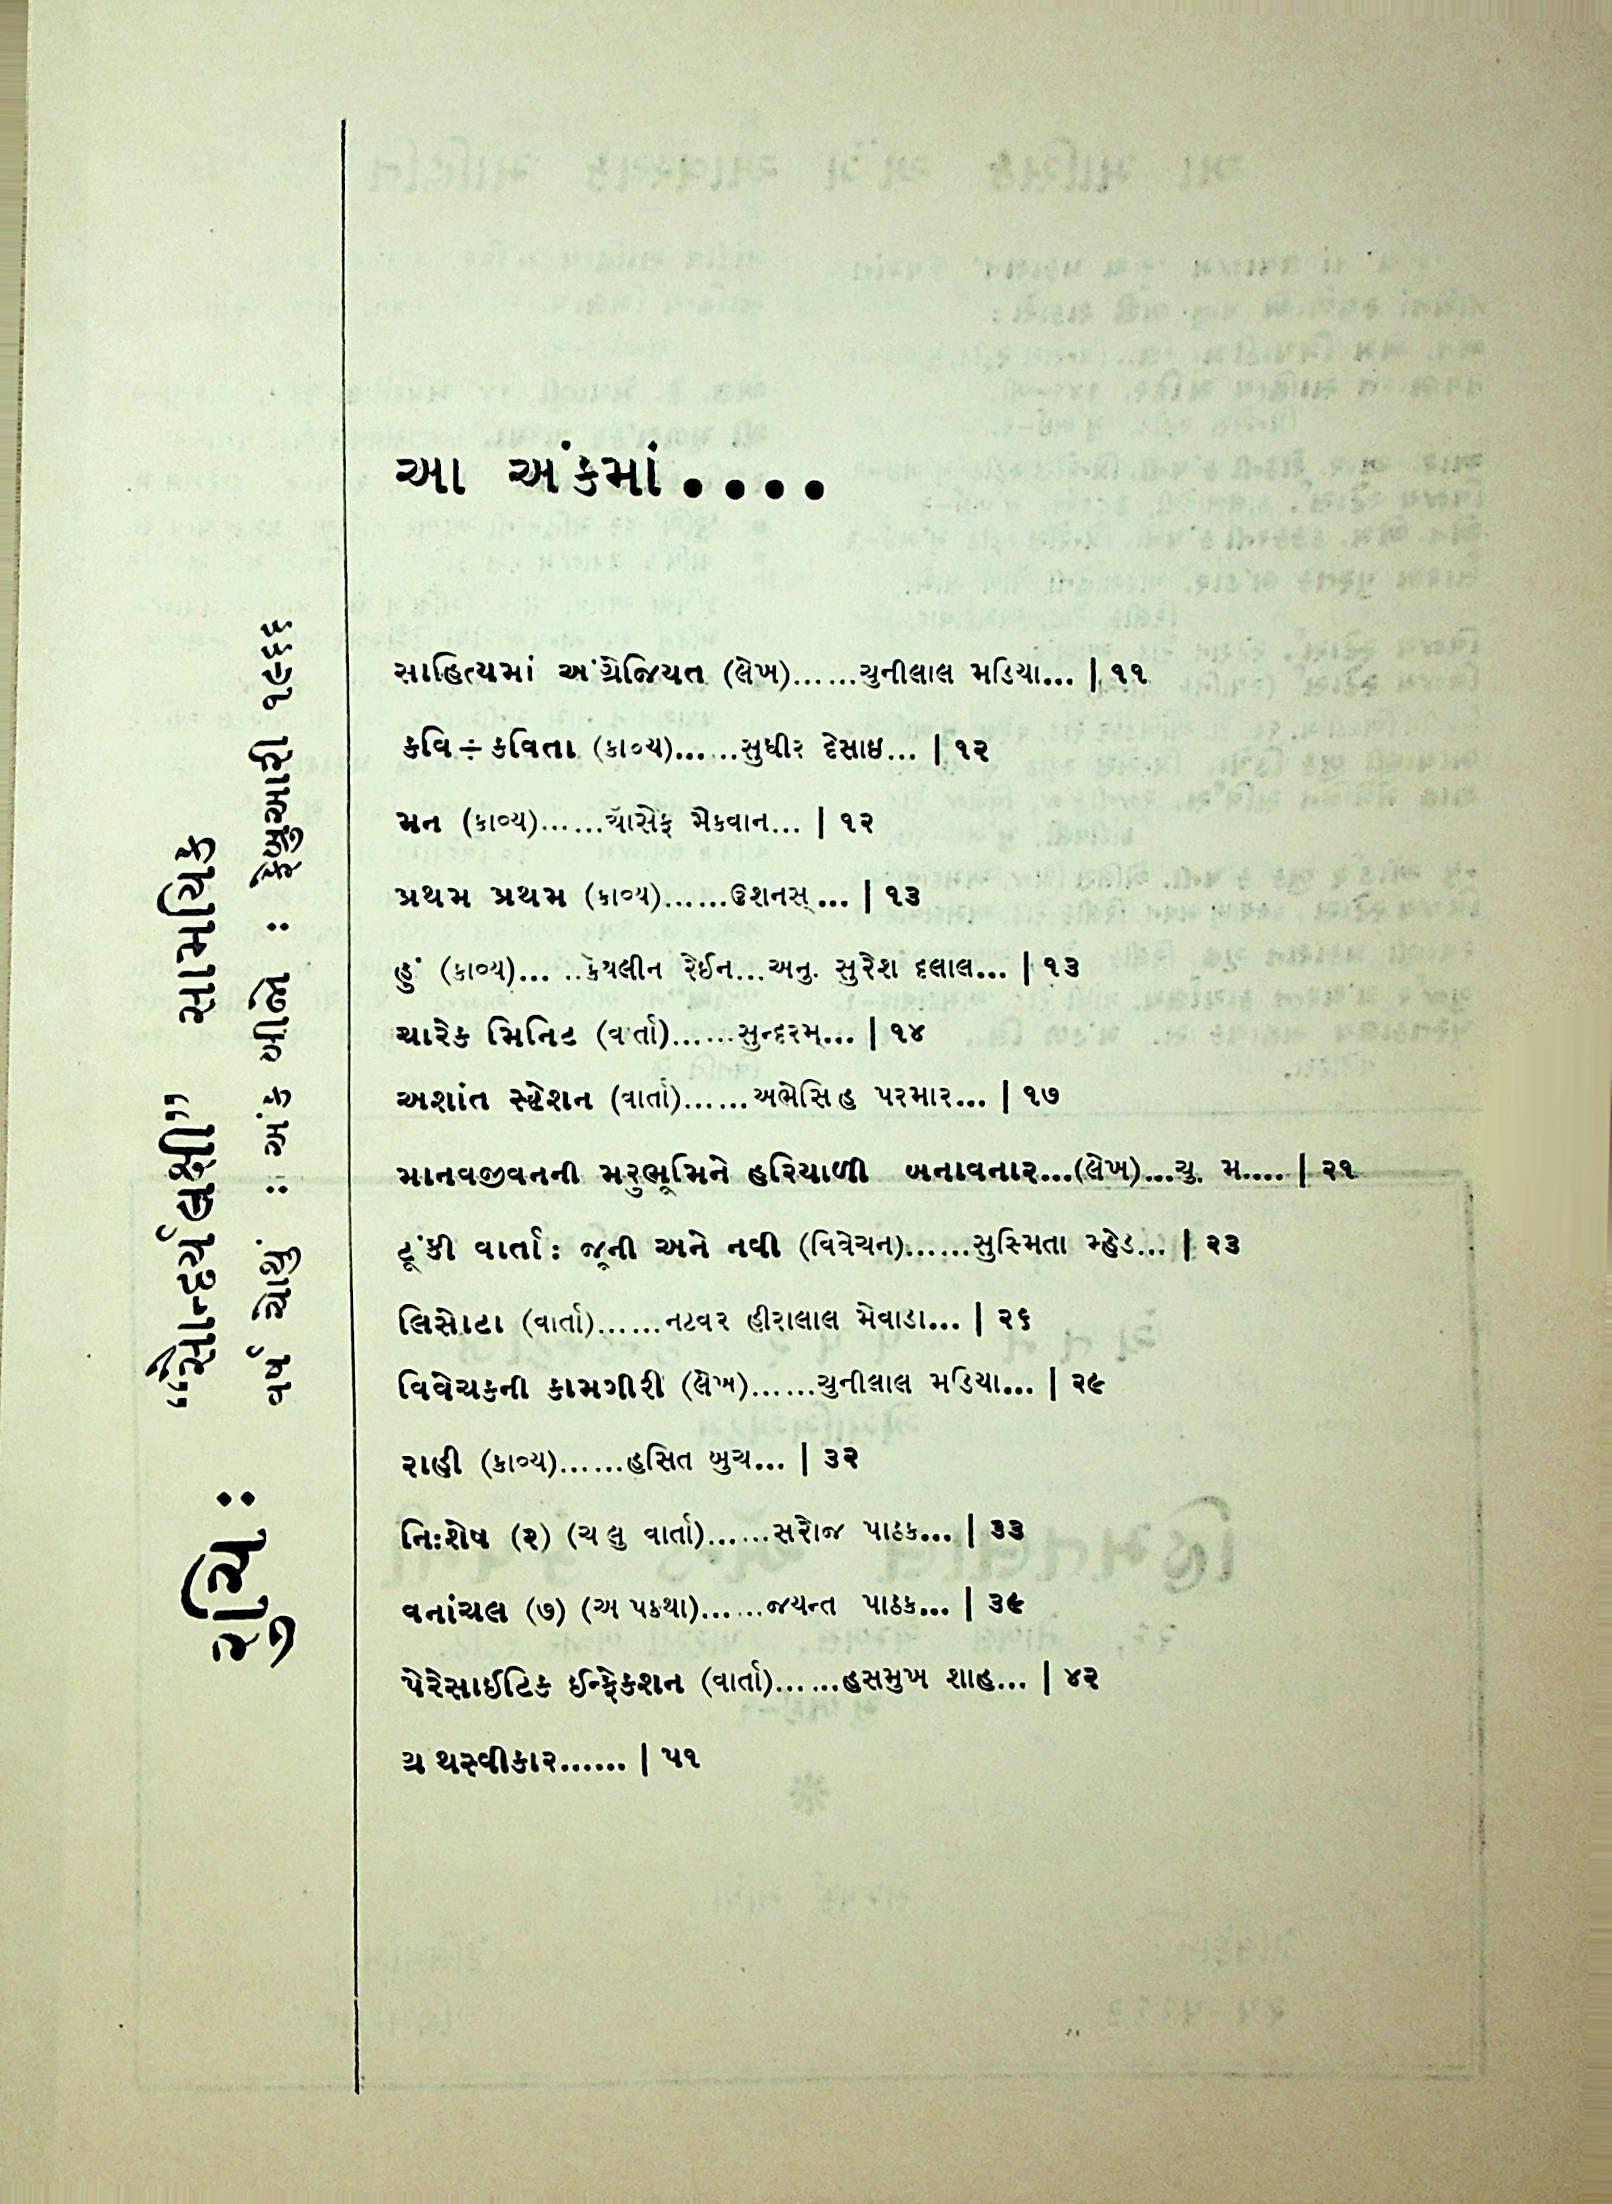 રુચિ :
“સૌન્દર્યલક્ષી” સામયિક
વર્ષ ચોથું : : અંક બીજો : ફેબ્રુઆરી ૧૯૬૬
આ અંકમાં....
સાહિત્યમાં અંગ્રેજિયત (લેખ)......ચુનીલાલ મડિયા... | ૧૧
કવિ ÷ કવિતા (કાવ્ય)......સુધીર દેસાઇ... | ૧૨
મન (કાવ્ય)......યૉસેફ મૅકવાન... | ૧૨
પ્રથમ પ્રથમ (કાવ્ય)......ઉશનસ્... | ૧૩
હું (કાવ્ય)... ..કેથલીન રેઈન...અનુ. સુરેશ દલાલ... | ૧૩
ચારેક મિનિટ (વાર્તા)......સુન્દરમ્... | ૧૪
અશાંત સ્ટેશન (વાર્તા)......અભેસિંહ પરમાર... | ૧૭
માનવજીવનની મરુભૂમિને હરિયાળી બનાવનાર...(લેખ)...ચુ. મ.... | ૨૧
ટૂંકી વાર્તા: જૂની અને નવી (વિવેચન)......સુસ્મિતા મ્હેડ... | ૨૩
લિસોટા (વાર્તા)......નટવર હીરાલાલ મેવાડા... | ૨૬
વિવેચકની કામગીરી (લેખ)......ચુનીલાલ મડિયા... | ૨૯
રાહી (કાવ્ય)......હસિત બુચ... | ૩૨
નિ:શેષ (૨) (ચ લુ વાર્તા)......સરોજ પાઠક... | ૩૩
વનાંચલ (૭) (અ પકથા)......જયન્ત પાઠક... | ૩૯
પેરેસાઈટિક ઈન્ફેકશન (વાર્તા)......હસમુખ શાહ... | ૪૨
ગ્ર થસ્વીકાર...... | ૫૧